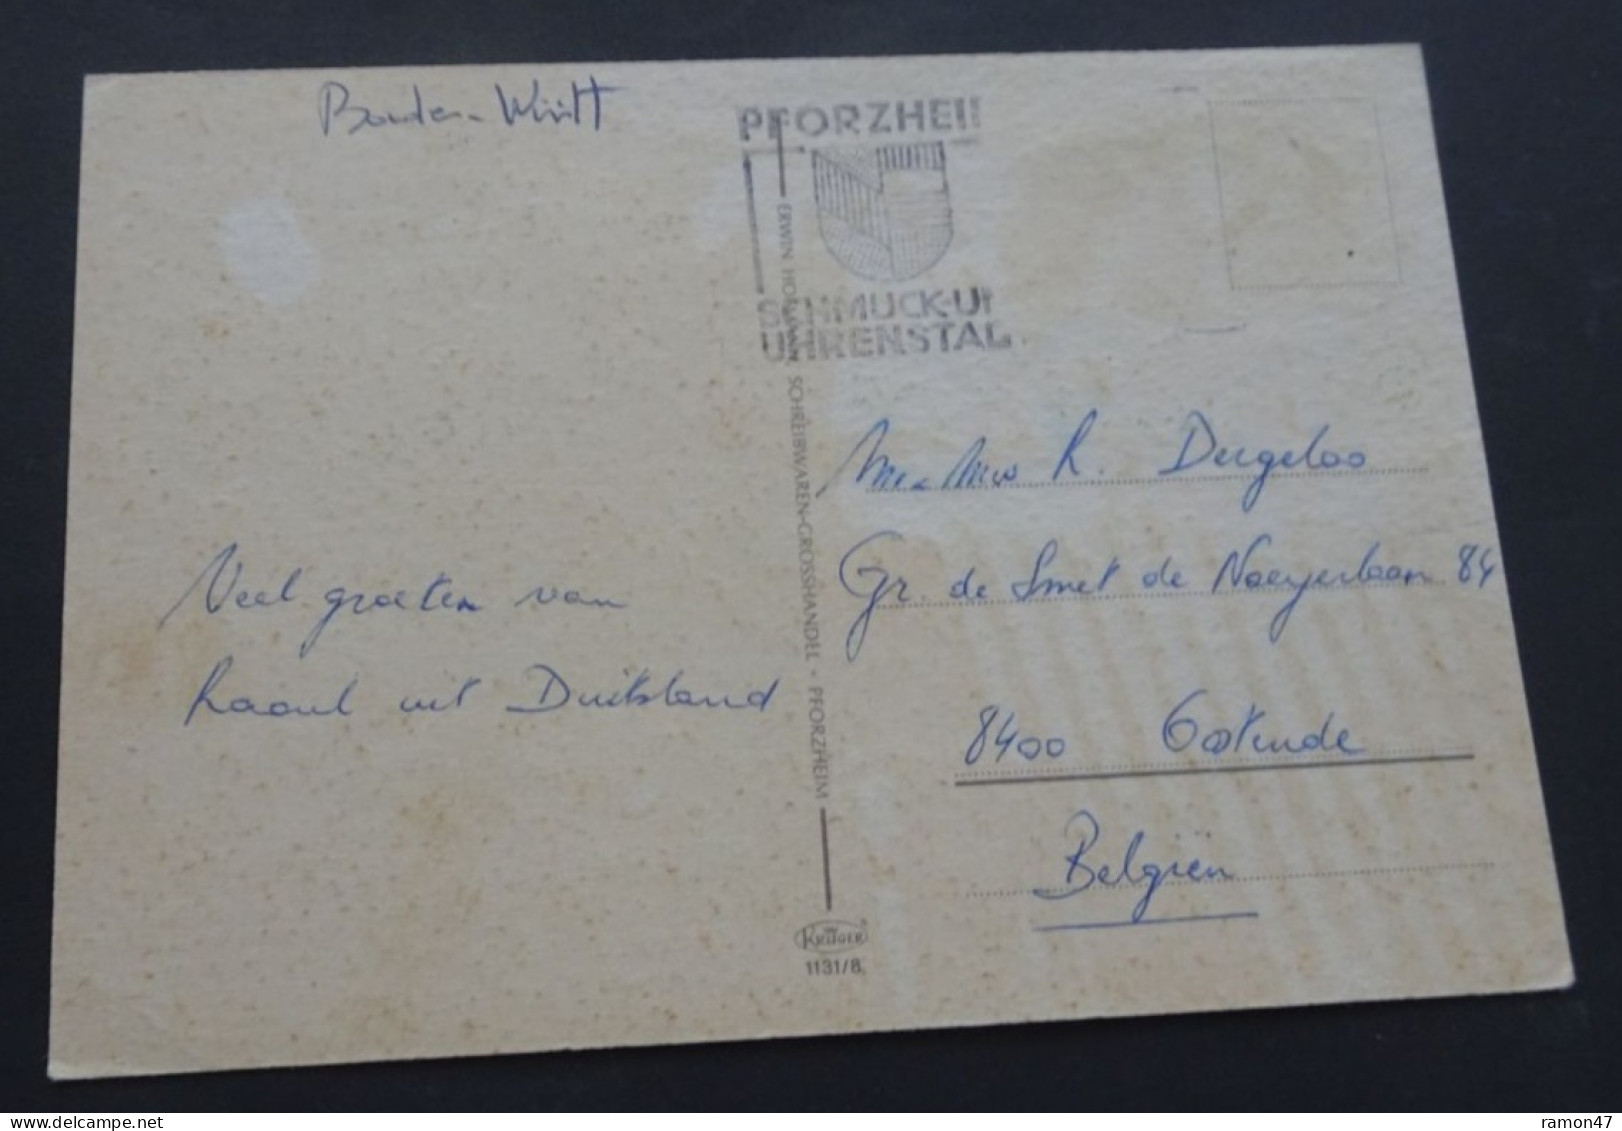 Baden-Württ
PFORZHEI
SCHMUCK-U
UHRENSTAD
ERWIN HOFMANN, SCHREIBWAREN-GROSSHANDEL · PFORZHEIM
Veel groeten van
Raoul uit Duitsland
R. Dergeloo
Gr. de Smet de Naeyerlaan 84
8400 Oostende
Belgiën
KRÜGER
1131/8
ramon47